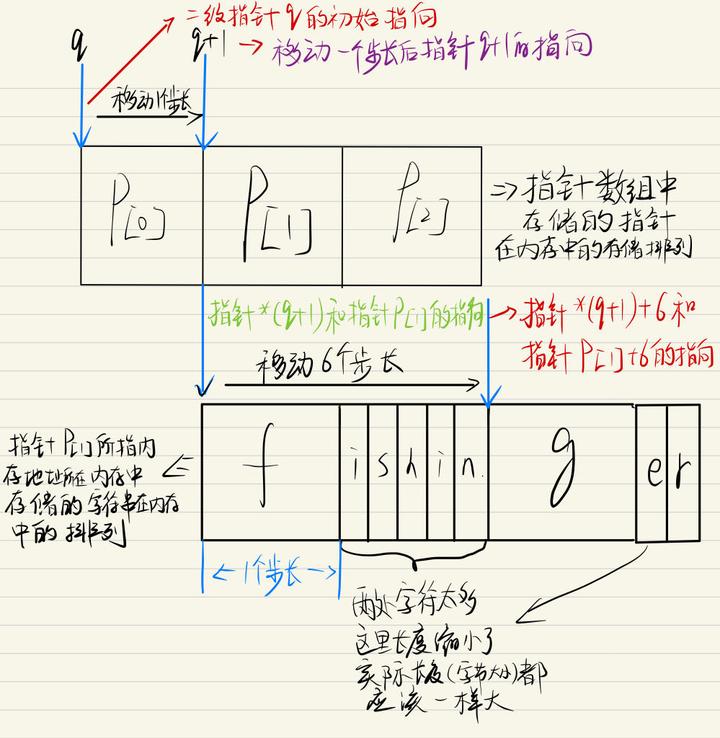 二级指针q的初始指向
q
q+1 → 移动一个步长后指针q+1的指向
移动1个步长
P[0]
P[1]
P[2]
=> 指针数组中
存储的指针
在内存中的存储排列
指针*(q+1)和指针P[1]的指向
→ 指针*(q+1)+6和
指针P[1]+6的指向
移动6个步长
指针P[1]所指内
存地址在内存中
存储的字符串在内存
中的排列
f
i s h i n
g
e r
← 1个步长 →
两处字符太多
这里长度缩小了
实际长度(字节大小)都
应该一样大